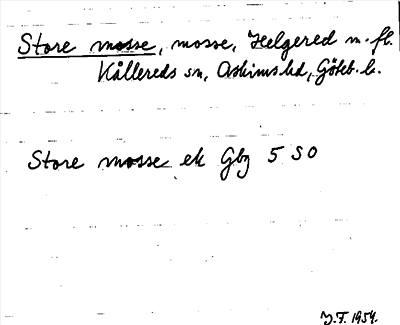 Store mosse, mosse, Helgered m. fl.
Kållereds sn, Askims hd, Göteb. l.
Store mosse ek Gbg 5 SO
J.F. 1954.